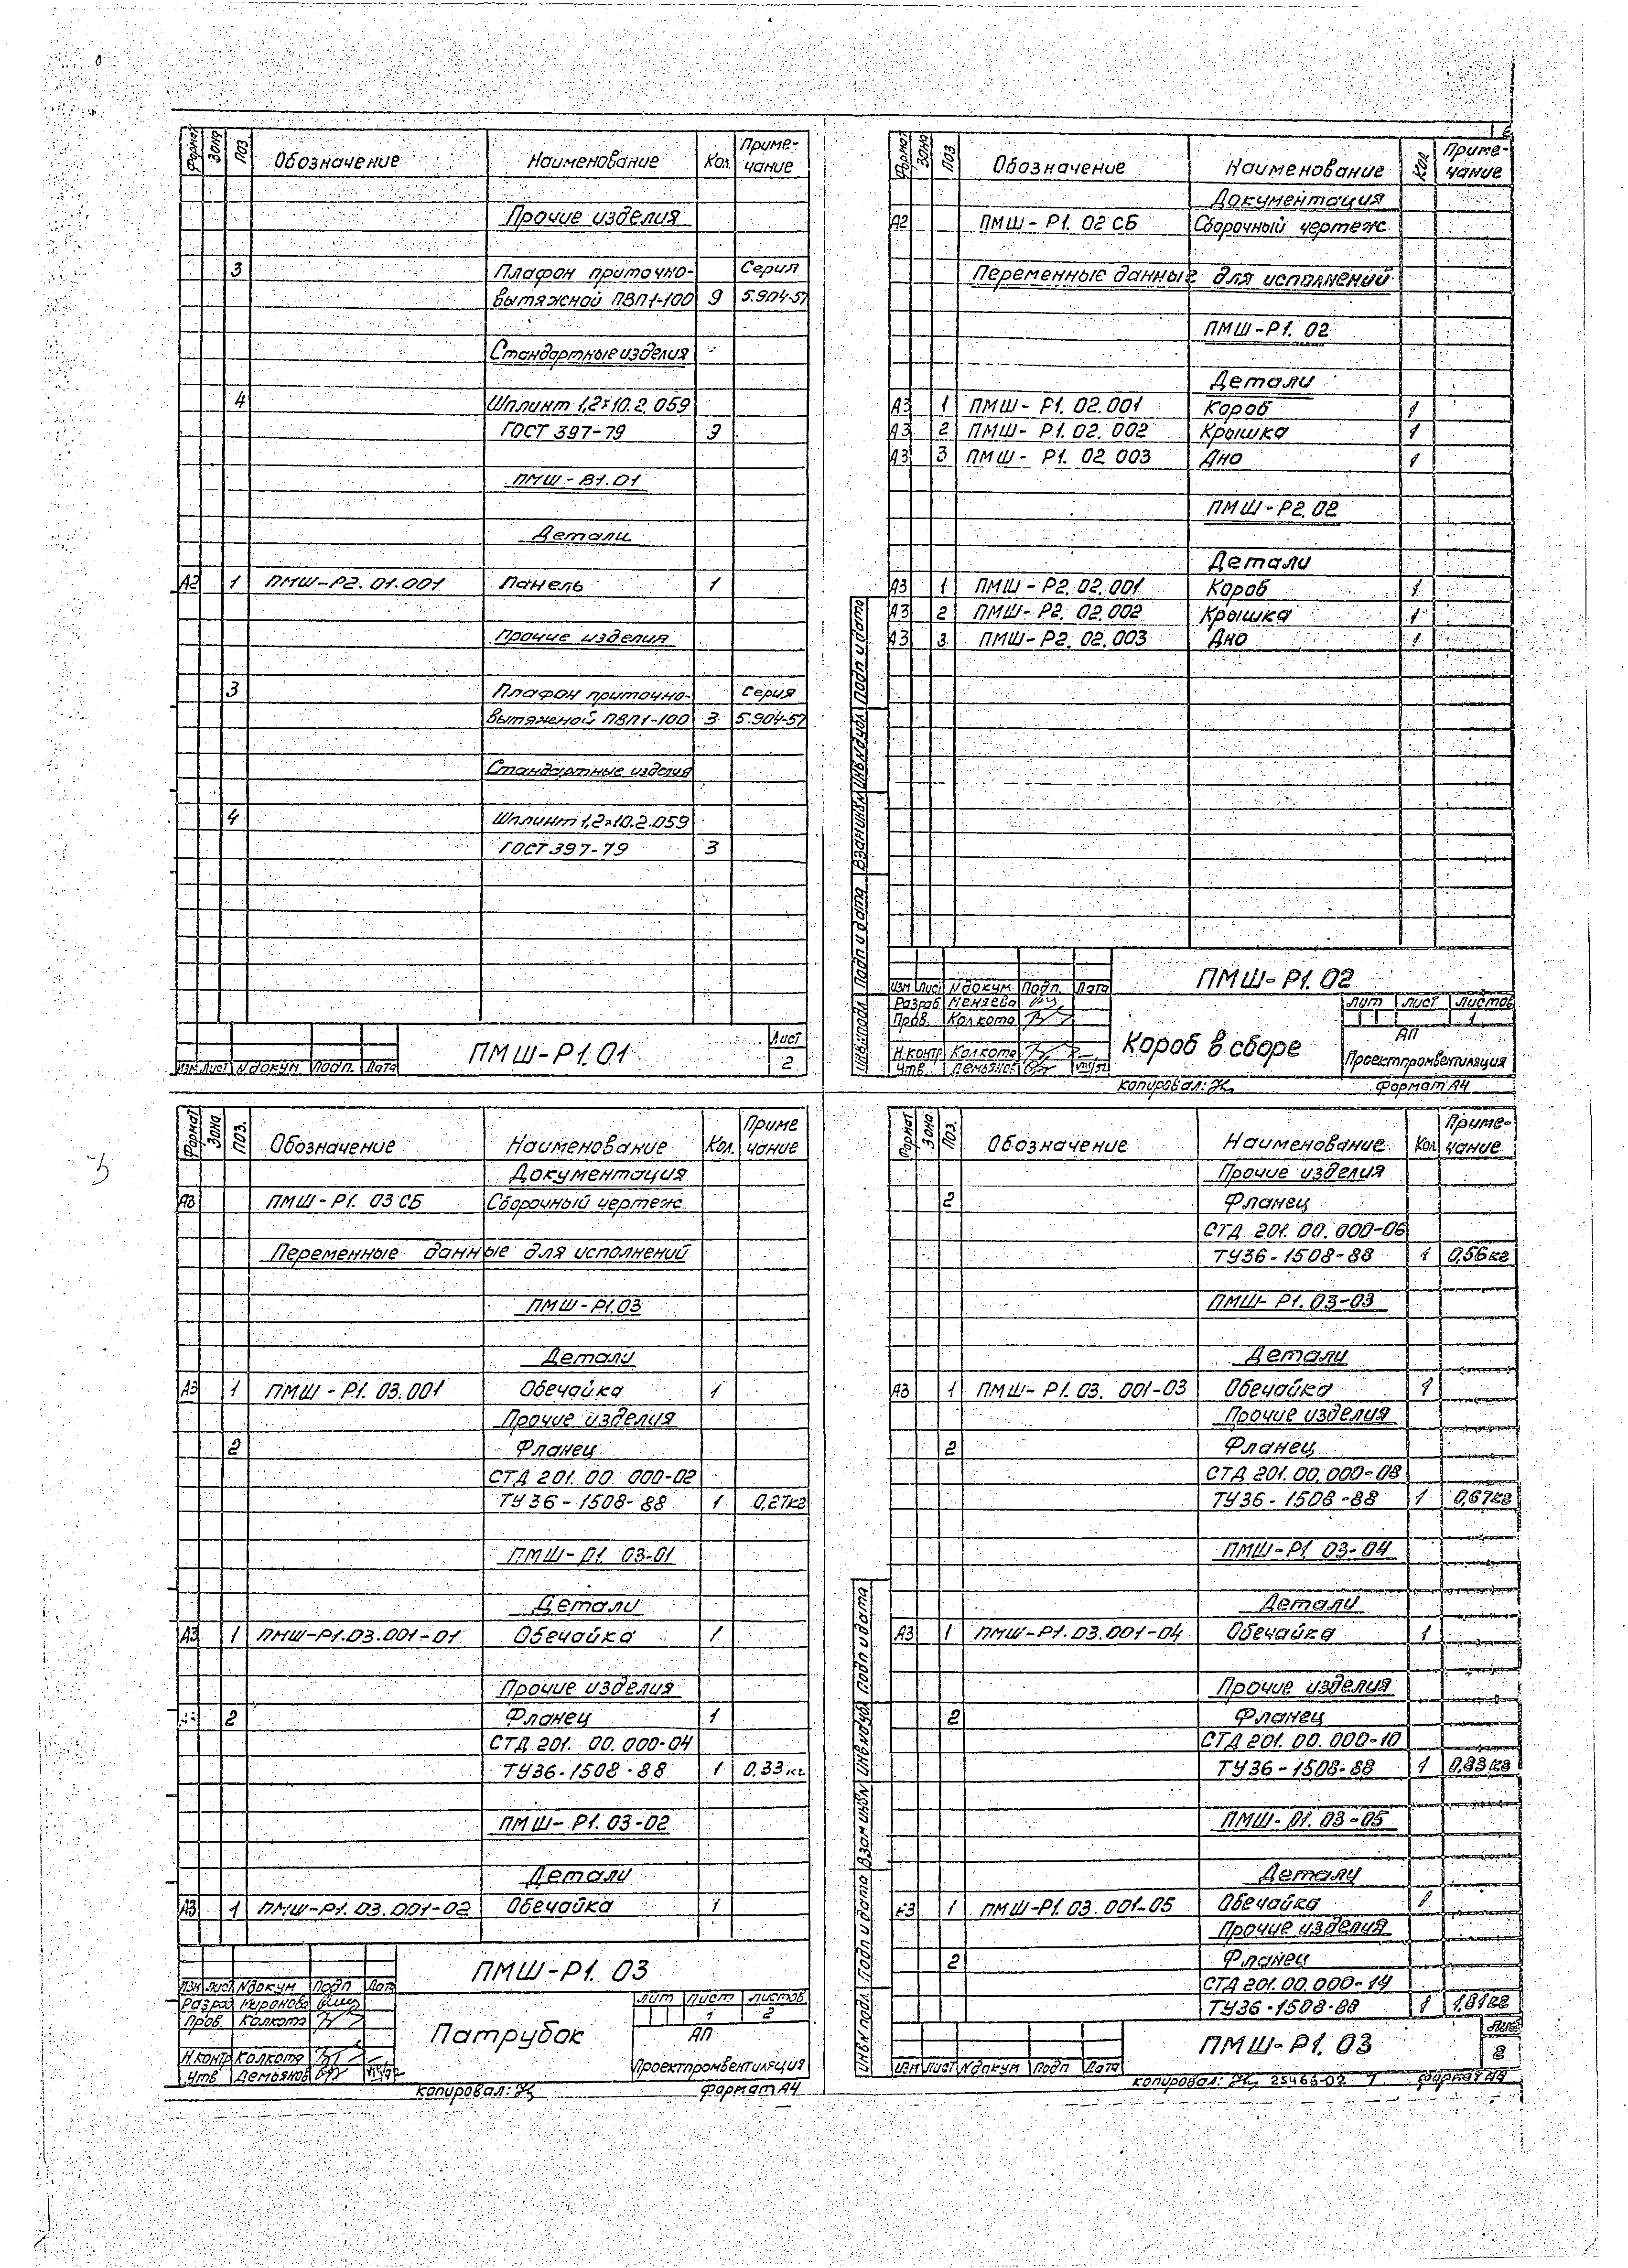 Формат Зона Поз Обозначение Наименование Кол Приме-чание
Прочие изделия
3 Плафон приточно- Серия
вытяжной ПВП1-100 9 5.904-51
Стандартные изделия
4 Шплинт 1,2×10.2.059
ГОСТ 397-79 9
ПМШ-В1.01
Детали
А2 1 ПМШ-Р2.01.001 Панель 1
Прочие изделия
3 Плафон приточно- Серия
вытяжной ПВП1-100 3 5.904-51
Стандартные изделия
4 Шплинт 1,2×10.2.059
ГОСТ 397-79 3
ПМШ-Р1.01
Лист
2
Изм Лист N докум Подп. Дата
Формат Зона Поз Обозначение Наименование Кол Приме-чание
Документация
А2 ПМШ-Р1.02 СБ Сборочный чертеж
Переменные данные для исполнений
ПМШ-Р1.02
Детали
А3 1 ПМШ-Р1.02.001 Короб 1
А3 2 ПМШ-Р1.02.002 Крышка 1
А3 3 ПМШ-Р1.02.003 Дно 1
ПМШ-Р2.02
Детали
А3 1 ПМШ-Р2.02.001 Короб 1
А3 2 ПМШ-Р2.02.002 Крышка 1
А3 3 ПМШ-Р2.02.003 Дно 1
Инв.N подл Подп и дата Взам инв N Инв.N дубл Подп и дата
ПМШ-Р1.02
Изм Лист N докум Подп. Дата
Разраб Меняева
Пров. Колкота
Н.контр Колкота
Утв Демьянов
Короб в сборе
Лит Лист Листов
1
АП
Проектпромвентиляция
Копировал: Формат А4
Формат Зона Поз. Обозначение Наименование Кол. Приме чание
Документация
А3 ПМШ-Р1.03 СБ Сборочный чертеж
Переменные данные для исполнений
ПМШ-Р1.03
Детали
А3 1 ПМШ-Р1.03.001 Обечайка 1
Прочие изделия
2 Фланец
СТД 201.00.000-02
ТУ36-1508-88 1 0,27кг
ПМШ-Р1.03-01
Детали
А3 1 ПМШ-Р1.03.001-01 Обечайка 1
Прочие изделия
2 Фланец 1
СТД 201.00.000-04
ТУ36-1508-88 1 0.33кг
ПМШ-Р1.03-02
Детали
А3 1 ПМШ-Р1.03.001-02 Обечайка 1
ПМШ-Р1.03
Изм Лист N докум Подп Дата
Разраб Миронова
Пров. Колкота
Н.контр Колкота
Утв Демьянов
Патрубок
Лит Лист Листов
1 2
АП
Проектпромвентиляция
Копировал: Формат А4
Формат Зона Поз. Обозначение Наименование Кол Приме-чание
Прочие изделия
2 Фланец
СТД 201.00.000-06
ТУ36-1508-88 1 0,56кг
ПМШ-Р1.03-03
Детали
А3 1 ПМШ-Р1.03.001-03 Обечайка 1
Прочие изделия
2 Фланец
СТД 201.00.000-08
ТУ36-1508-88 1 0,67кг
ПМШ-Р1.03-04
Детали
А3 1 ПМШ-Р1.03.001-04 Обечайка 1
Прочие изделия
2 Фланец
СТД 201.00.000-10
ТУ36-1508-88 1 0,83кг
ПМШ-Р1.03-05
Детали
А3 1 ПМШ-Р1.03.001-05 Обечайка 1
Прочие изделия
2 Фланец
СТД 201.00.000-14
ТУ36-1508-88 1 1,81кг
Инв.N подл Подп и дата Взам инв N Инв.N дубл Подп и дата
ПМШ-Р1.03
Лист
2
Изм Лист N докум Подп Дата
Копировал: 25466-02 7 Формат А4